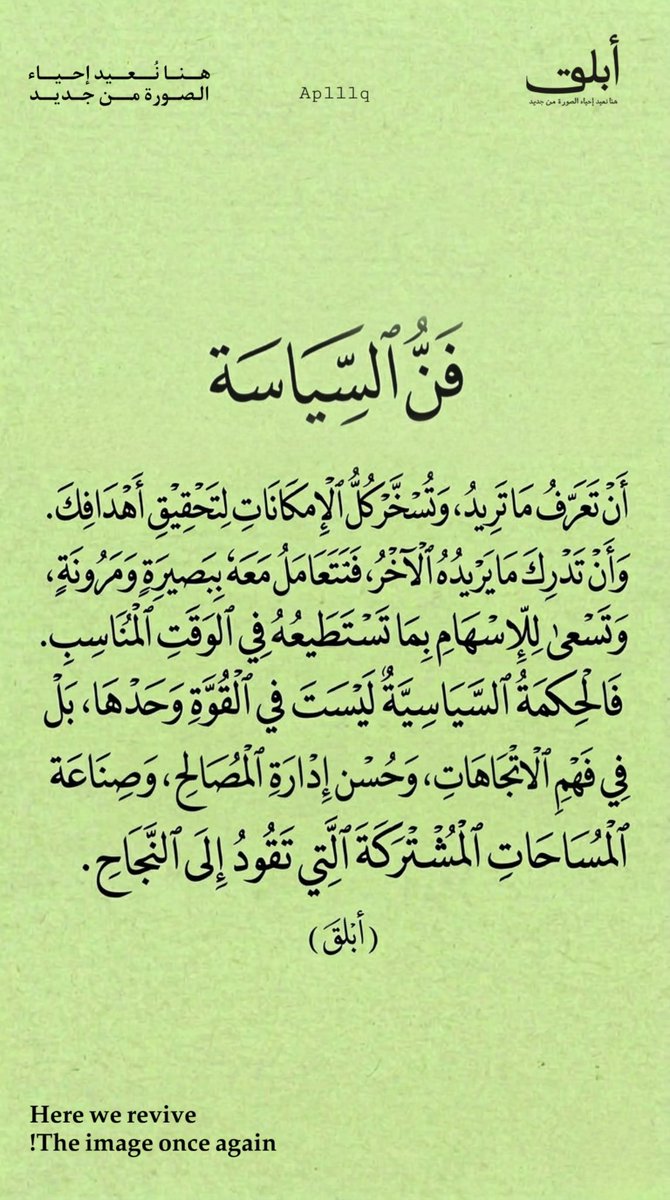 أبلق
هنا نعيد إحياء الصورة من جديد
Ap1llq
هـنـا نُـعـيـد إحـيـاء
الصـورة مـن جـديـد
فَنُّ ٱلسِّيَاسَة
أَنْ تَعَرَّفُ مَا تَرِيدُ، وَتُسْخَّرْ كُلُّ ٱلْإِمكَانَاتِ لِتَحْقِيْقِ أَهْدَافِكَ.
وَأَنْ تَدْرِكَ مَا يَرْيدُهُ ٱلْآخْرُ، فَتَتَعَامَلُ مَعَهُ بِبَصيرَةٍ وَمَرُونَةٍ،
وَتَسْعىٰ لِلْإِسْهَامِ بِمَا تَسْتَطَيعُهُ فِي ٱلوَقَتِ ٱلْمُنَاسِبِ.
فَالْحِكمَةُ ٱلسَّيَاسِيَّةُ لَيْسَتَ في ٱلْقُوَّةِ وَحَدْهَا، بَلْ
فِي فَهْمِ ٱلْاتْجَاهَاتِ، وَحُسْن إِدْارَةِ ٱلْمْصَالحِ، وَصِنَاعَة
ٱلْمْسَاحَاتِ ٱلْمُشْتْرَكَةَ ٱلَّتِي تَقُودُ إِلَى ٱلنَّجَاحِ.
(أَبْلقَ)
Here we revive
!The image once again